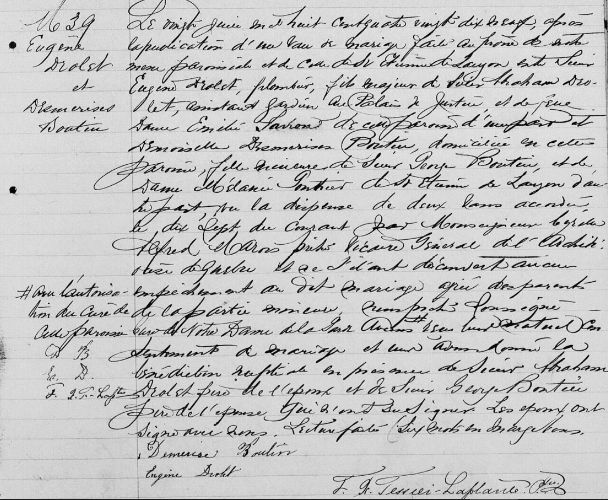 M 39
Eugène
Drolet
et
Desmerises
Boutin
Le vingt juin mil huit cent quatre vingt dix neuf, après
la publication d'un ban de mariage faite au prône de notre
messe paroissiale et de celle de St Etienne de Lauzon entre Sieur
Eugène Drolet, plombier, fils majeur de Sieur Abraham Dro-
let, assistant gardien au Palais de Justice, et de feue
Dame Emélie de cette paroisse d'une part et
Demoiselle Desmerises Boutin, domiciliée en cette
paroisse, fille mineure de Sieur George Boutin, et de
Dame Mélanie de St Etienne de Lauzon d'au
tre part, vu la dispense de deux bans accordée
le dix sept du courant par Monseigneur
Alfred Marois prêtre Vicaire Général de l'Archidio-
cèse de Québec et ne s'étant découvert aucun
empêchement au dit mariage des parents
# avec l'autorisa-
tion du Curé de
cette paroisse
D B
E. D.
F. X. T.-Lapte
de la partie mineure, # soussigné
curé de Notre Dame de la Garde leur mutuel con
sentement de mariage et leur avons donné la
bénédiction nuptiale en présence de Sieur Abraham
Drolet père de l'époux et de Sieur George Boutin
père de l'épouse qui n'ont su signer. Les époux ont
signé avec nous. Lecture faite. Six mots en marge bons.
Demerise Boutin
Eugène Drolet
Tessier-Laplante Ptre